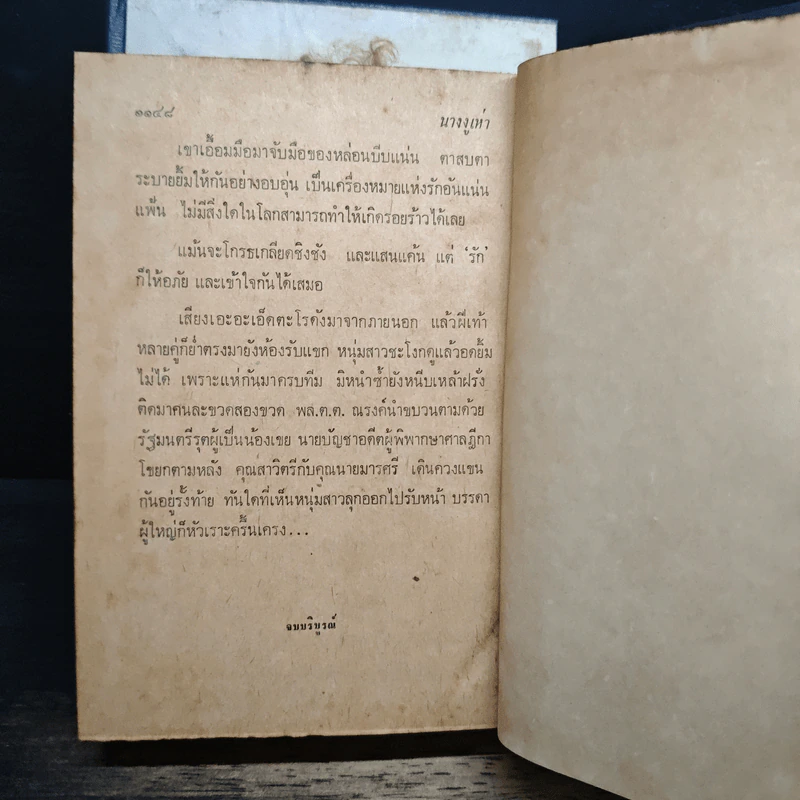 ๑๑๔๘
นางงูเห่า
เขาเอื้อมมือมาจับมือของหล่อนบีบแน่น ตาสบตา
ระบายยิ้มให้กันอย่างอบอุ่น เป็นเครื่องหมายแห่งรักอันแน่น
แฟ้น ไม่มีสิ่งใดในโลกสามารถทำให้เกิดรอยร้าวได้เลย
แม้นจะโกรธเกลียดชิงชัง และแสนแค้น แต่ ‘รัก’
ก็ให้อภัย และเข้าใจกันได้เสมอ
เสียงเอะอะเอ็ดตะโรดังมาจากภายนอก แล้วฝีเท้า
หลายคู่ก็ย่ำตรงมายังห้องรับแขก หนุ่มสาวชะโงกดูแล้วอดยิ้ม
ไม่ได้ เพราะแห่กันมาครบทีม มิหนำซ้ำยังหนีบเหล้าฝรั่ง
ติดมาคนละขวดสองขวด พล.ต.ต. ณรงค์นำขบวนตามด้วย
รัฐมนตรีรุตผู้เป็นน้องเขย นายบัญชาอดีตผู้พิพากษาศาลฎีกา
โขยกตามหลัง คุณสาวิตรีกับคุณนายมารศรี เดินควงแขน
กันอยู่รั้งท้าย ทันใดที่เห็นหนุ่มสาวลุกออกไปรับหน้า บรรดา
ผู้ใหญ่ก็หัวเราะครื้นเครง...
จบบริบูรณ์